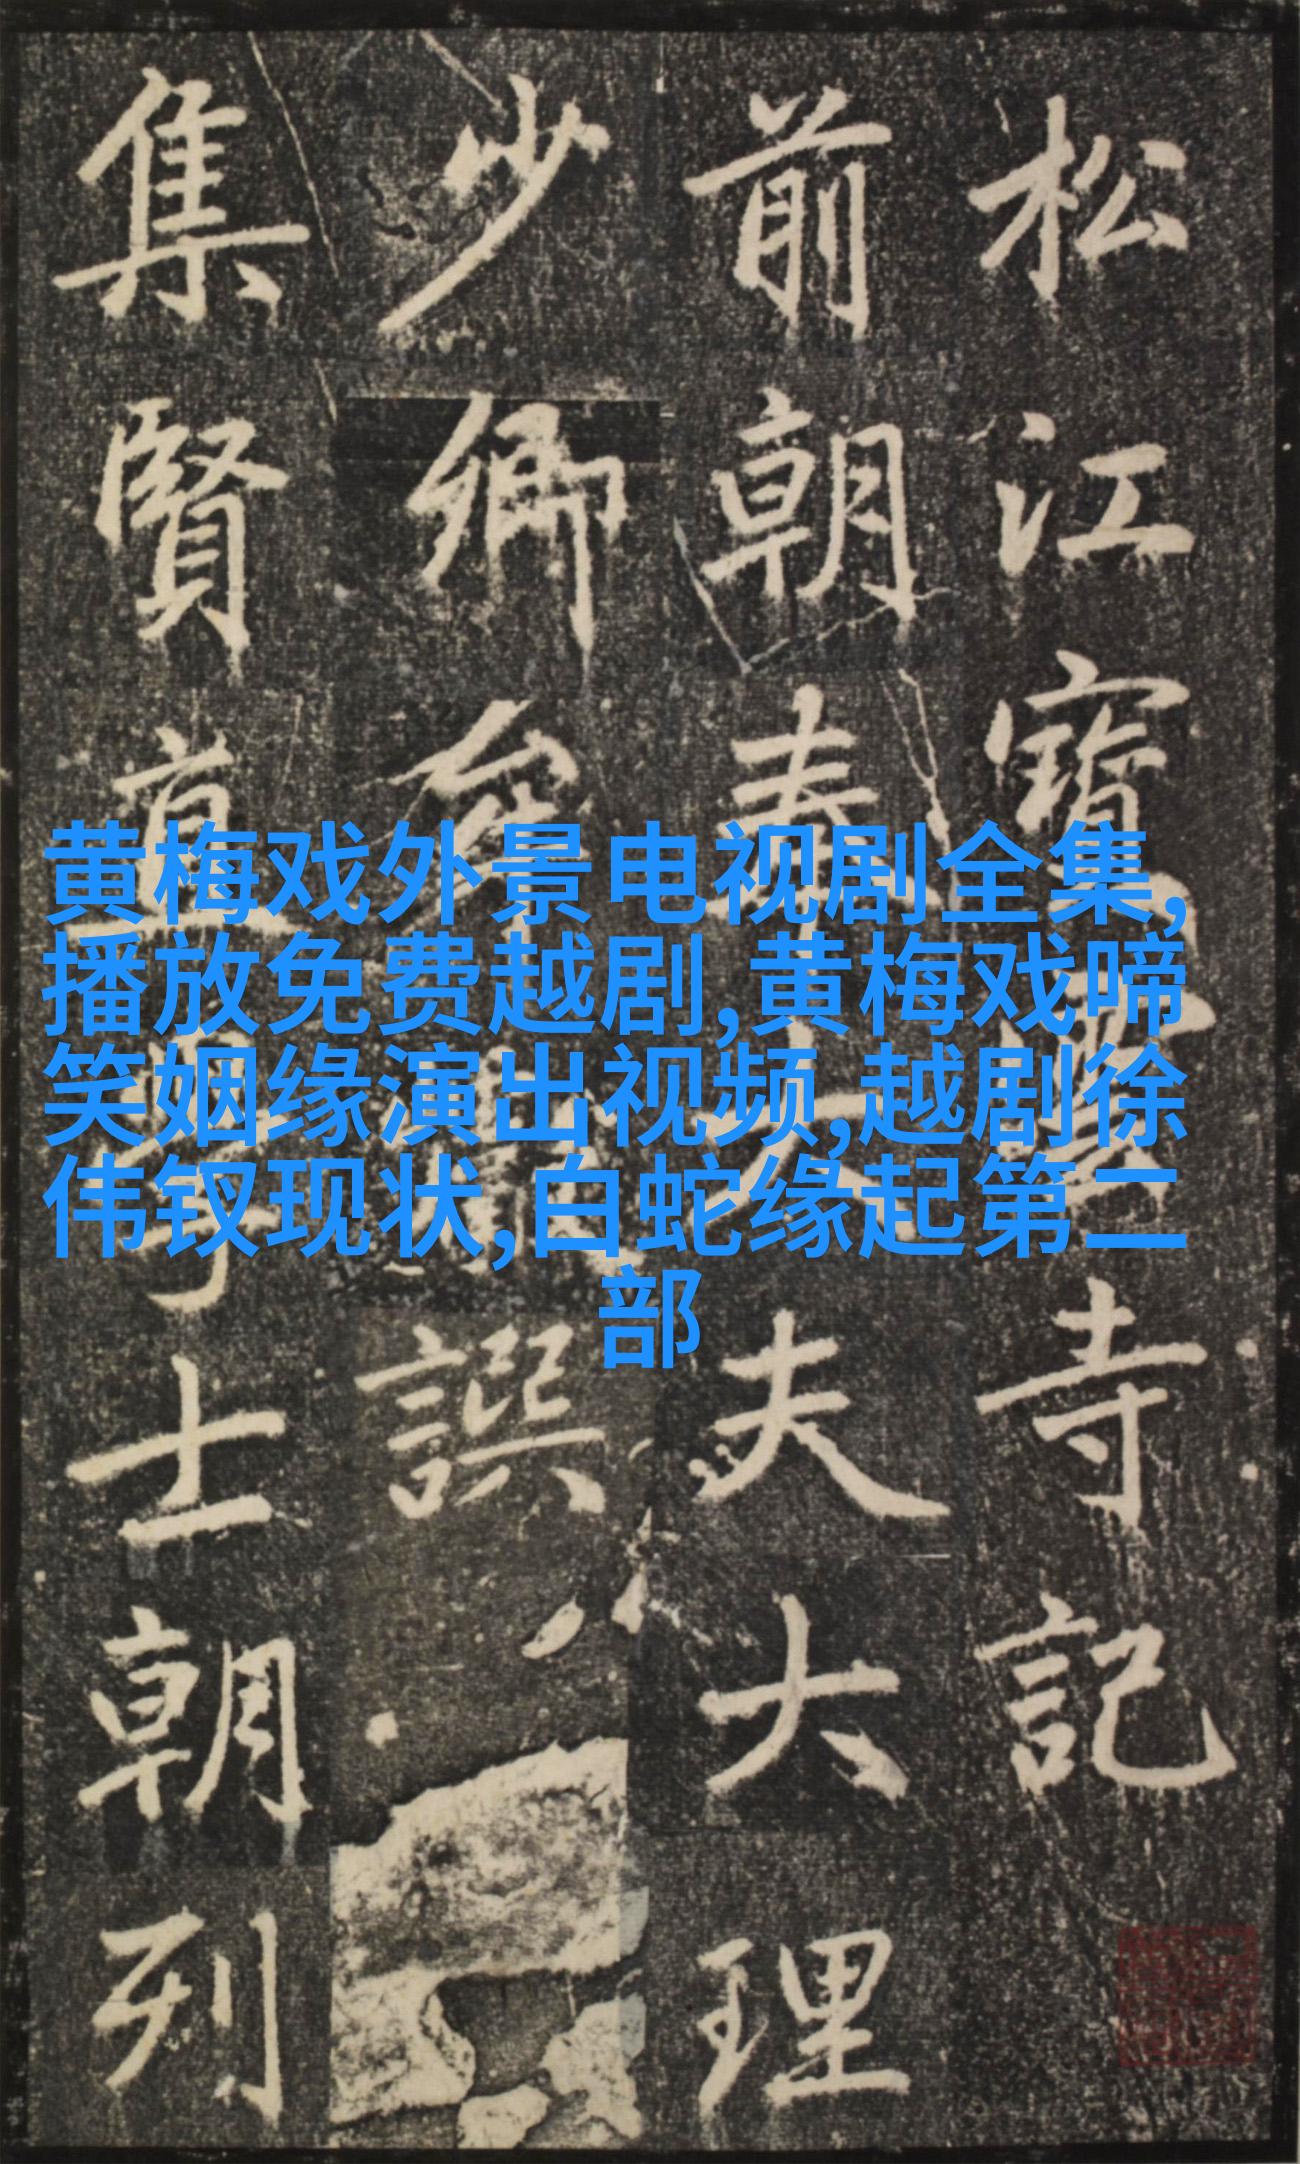 松江寳雲寺記
前朝奉大夫大理
少卿牟巘譔
集賢直學士朝列
黄梅戏外景电视剧全集,
播放免费越剧,黄梅戏啼
笑姻缘演出视频,越剧徐
伟钗现状,白蛇缘起第二
部